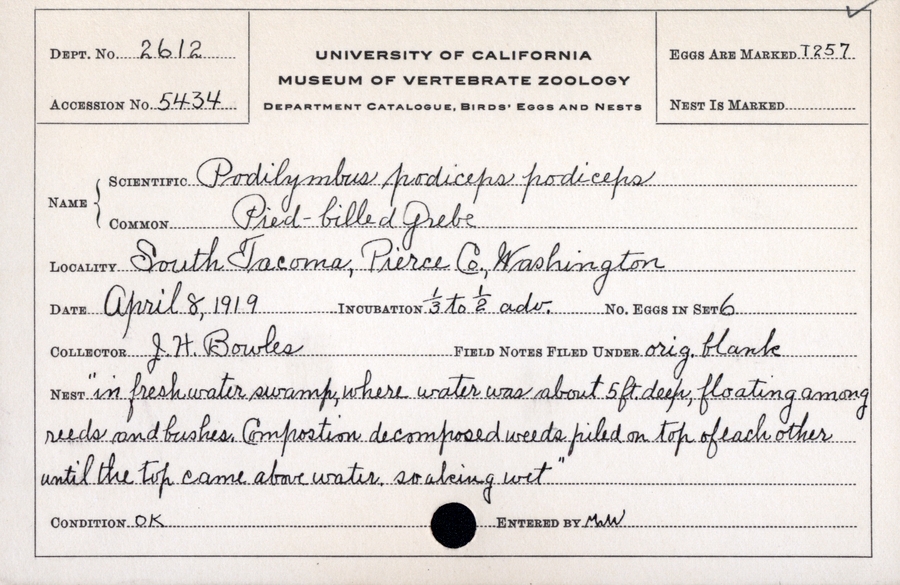 DEPT. No. 2612
UNIVERSITY OF CALIFORNIA
EGGS ARE MARKED 1257
MUSEUM OF VERTEBRATE ZOOLOGY
ACCESSION No. 5434
DEPARTMENT CATALOGUE, BIRDS' EGGS AND NESTS
NEST IS MARKED
NAME
SCIENTIFIC Podilymbus podiceps podiceps
COMMON Pied-billed Grebe
LOCALITY South Tacoma, Pierce Co., Washington
DATE April 8, 1919 INCUBATION 1/3 to 1/2 adv. No. EGGS IN SET 6
COLLECTOR J. H. Bowles FIELD NOTES FILED UNDER orig. blank
NEST "in freshwater swamp, where water was about 5 ft. deep, floating among
reeds and bushes. Compostion decomposed weeds piled on top of each other
until the top came above water. soaking wet"
CONDITION OK ENTERED BY MaW